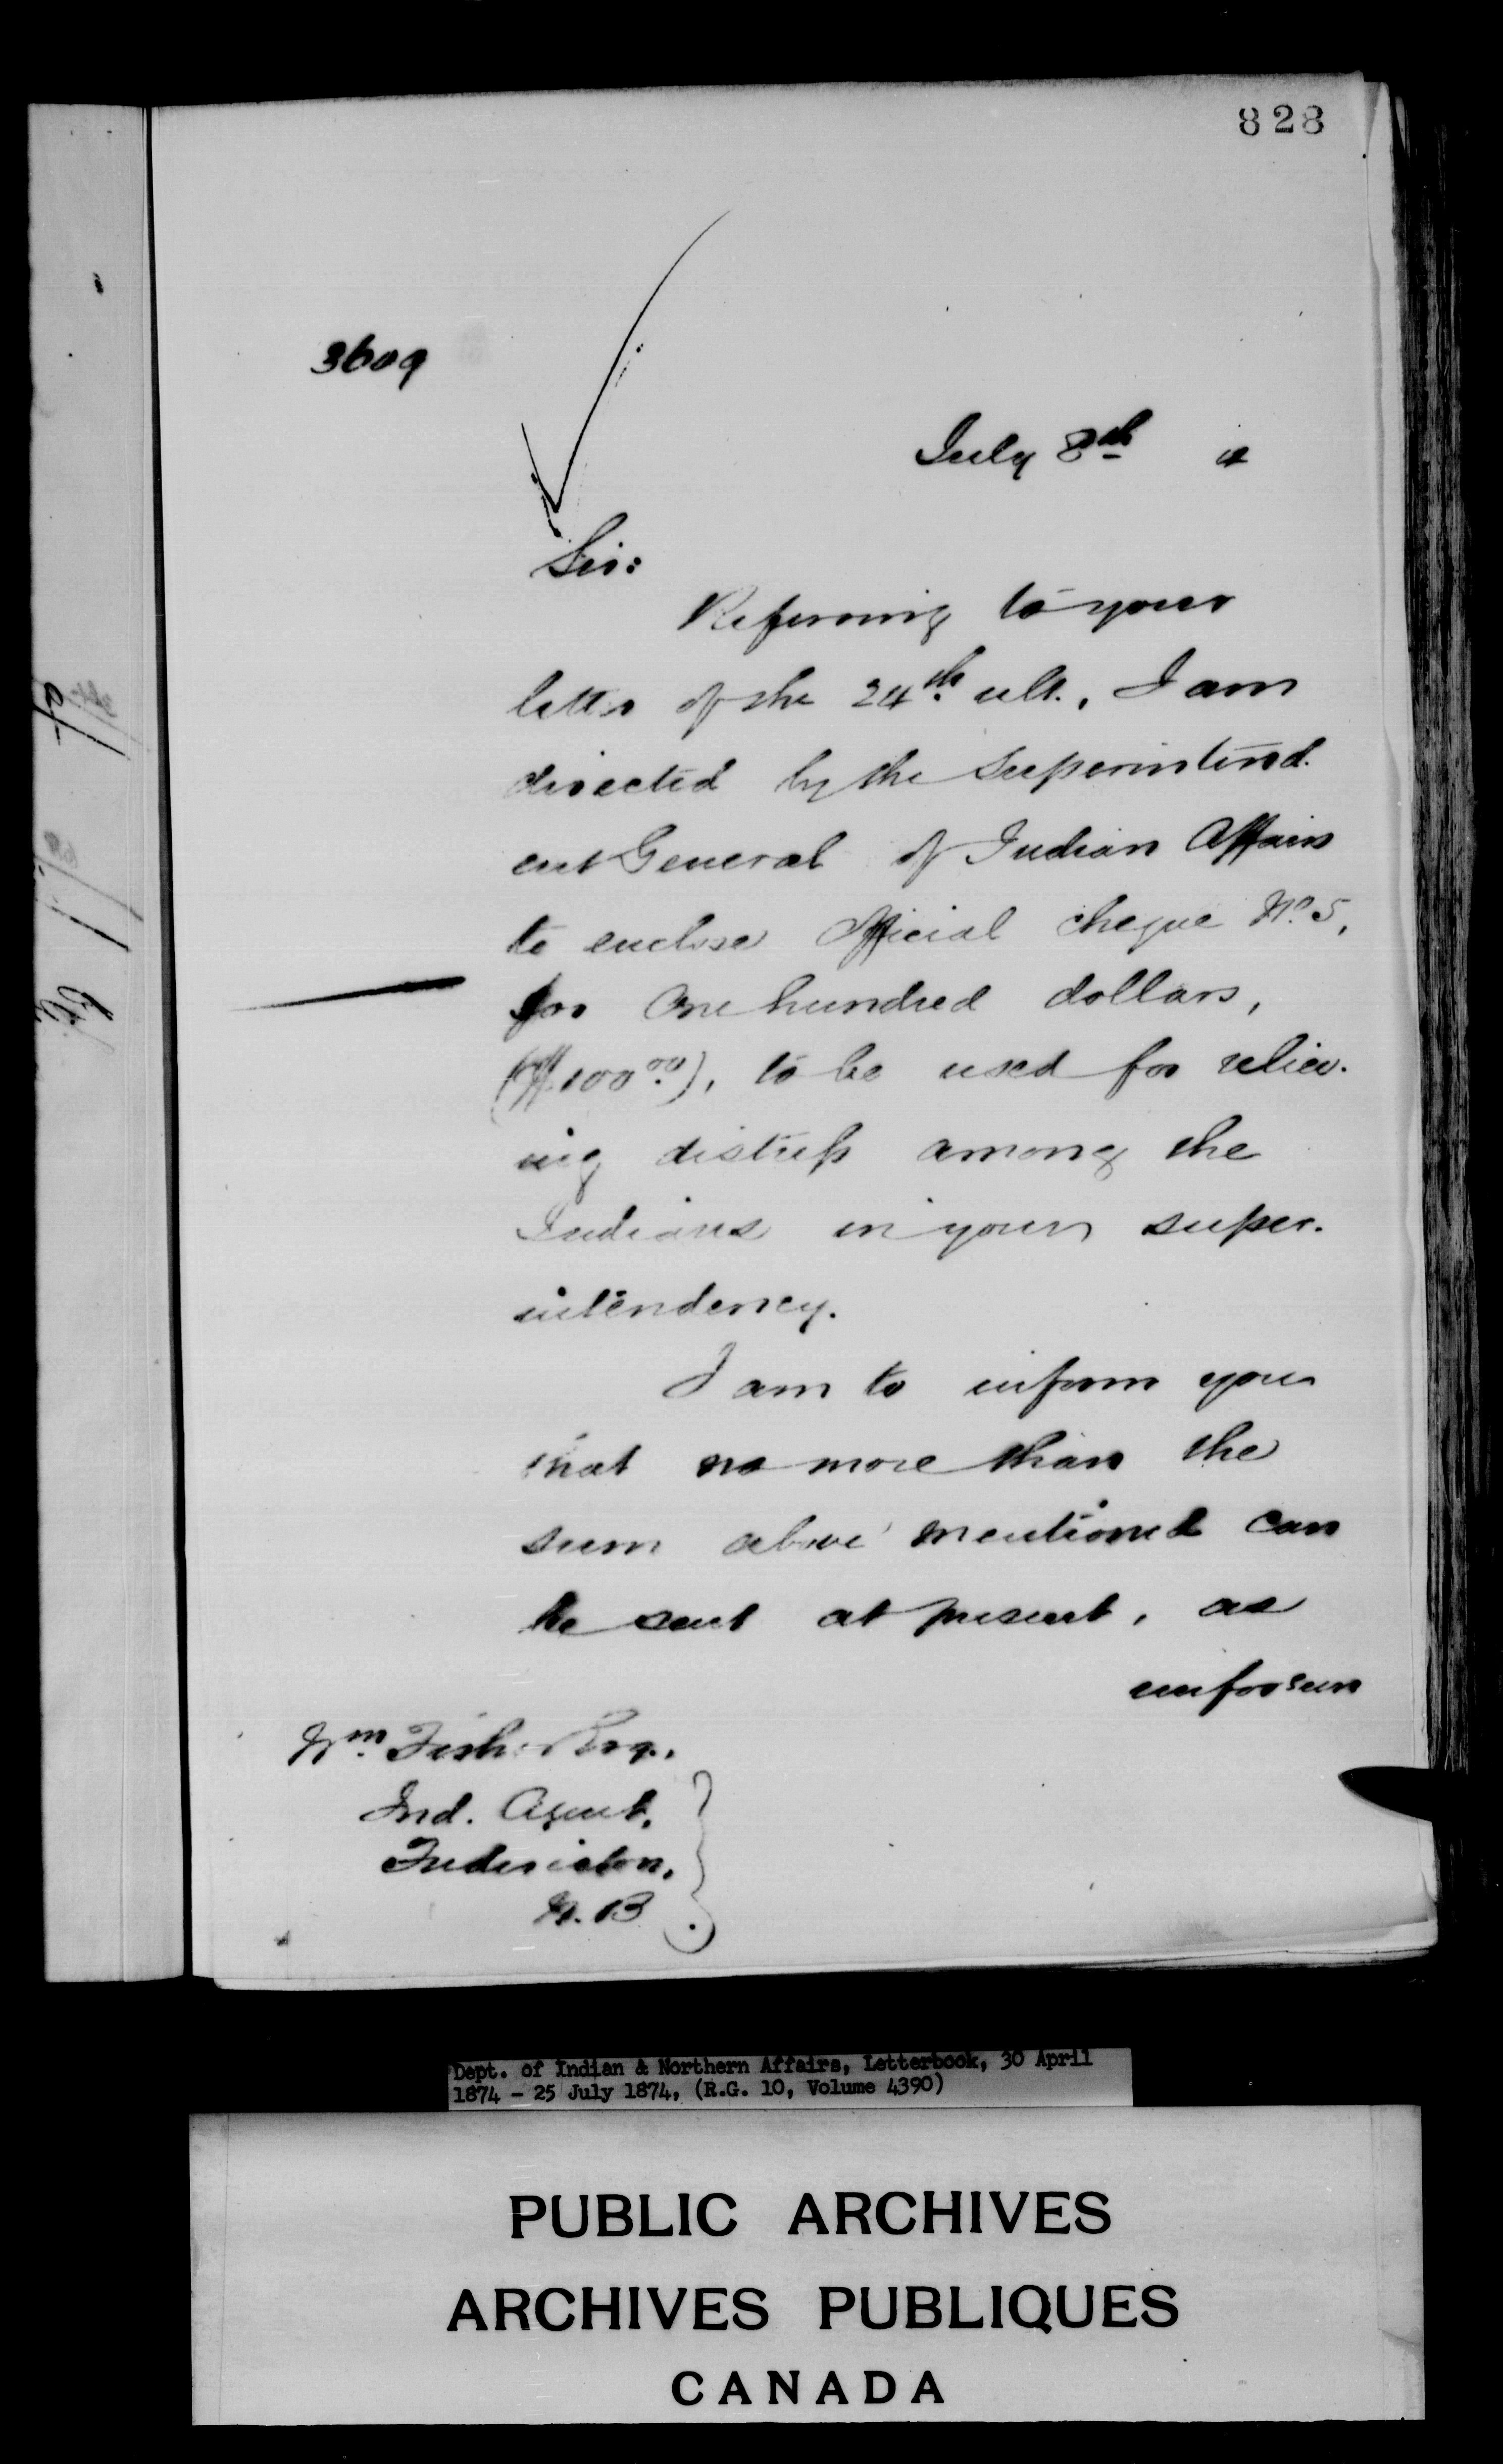 828
3609
July 8th 4
Sir:
Referring to your
letter of the 24th ult., I am
directed by the Superintend-
ent General of Indian Affairs
to enclose Official cheque No. 5,
for One hundred dollars,
($100.00), to be used for reliev-
ing distress among the
Indians in your super-
intendency.
I am to inform you
that no more than the
sum above mentioned can
be sent at present, as
unforseen
Wm. Fisher Esq.,
Ind. Agent,
Fredericton,
N.B.
Dept. of Indian & Northern Affairs, Letterbook, 30 April
1874 - 25 July 1874, (R.G. 10, Volume 4390)
PUBLIC ARCHIVES
ARCHIVES PUBLIQUES
CANADA